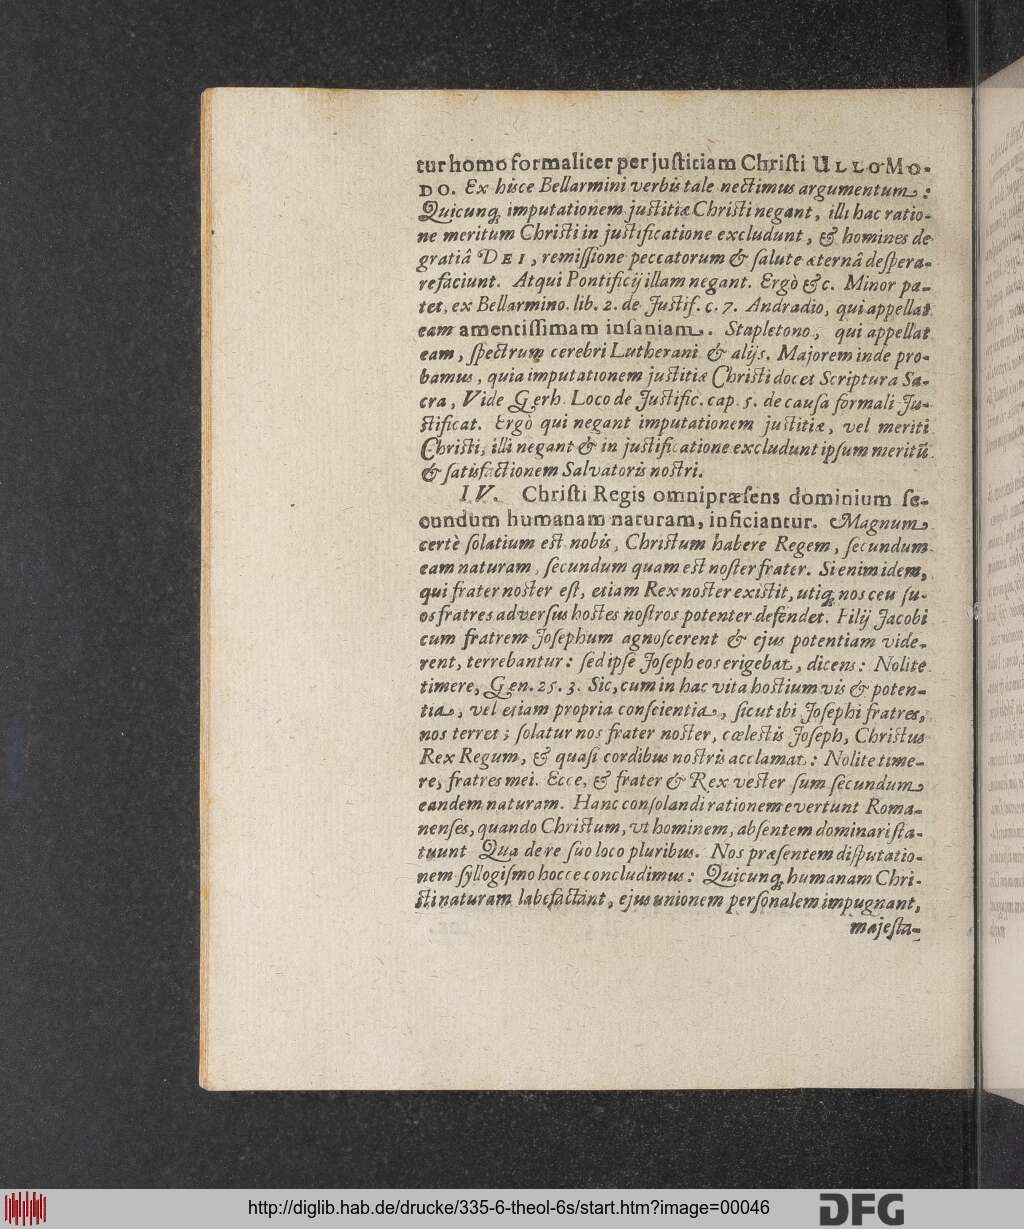 tur homo formaliter per justitiam Christi ULLO MO-
DO. Ex hisce Bellarmini verbis tale nectimus argumentum:
Quicunq; imputationem justitiæ Christi negant, illi hac ratio-
ne meritum Christi in justificatione excludunt, & homines de
gratiâ DEI, remissione peccatorum & salute æternâ despera-
re faciunt. Atqui Pontificij illam negant. Ergò &c. Minor pa-
tet, ex Bellarmino. lib. 2. de Justif. c. 7. Andradio, qui appellat
eam amentissimam insaniam. Stapletono, qui appellat
eam, spectrum cerebri Lutherani & alijs. Majorem inde pro-
bamus, quia imputationem justitiæ Christi docet Scriptura Sa-
cra, Vide Gerh. Loco de Justific. cap. 5. de causa formali Ju-
stificat. Ergò qui negant imputationem justitiæ, vel meriti
Christi, illi negant & in justificatione excludunt ipsum meritũ
& satisfactionem Salvatoris nostri.
IV. Christi Regis omnipræsens dominium se-
cundum humanam naturam, inficiantur. Magnum
certè solatium est nobis, Christum habere Regem, secundum
eam naturam, secundum quam est noster frater. Si enim idem,
qui frater noster est, etiam Rex noster existit, utiq; nos ceu su-
os fratres adversus hostes nostros potenter defendet. Filij Jacobi
cum fratrem Josephum agnoscerent & ejus potentiam vide-
rent, terrebantur: sed ipse Joseph eos erigebat, dicens: Nolite
timere, Gen. 25. 3. Sic, cum in hac vita hostium vis & poten-
tia, vel etiam propria conscientia, sicut ibi Josephi fratres,
nos terret; solatur nos frater noster, cœlestis Joseph, Christus
Rex Regum, & quasi cordibus nostris acclamat: Nolite time-
re, fratres mei. Ecce, & frater & Rex vester sum secundum
eandem naturam. Hanc consolandi rationem evertunt Roma-
nenses, quando Christum, vt hominem, absentem dominari sta-
tuunt Qua de re suo loco pluribus. Nos præsentem disputatio-
nem syllogismo hocce concludimus: Quicunq; humanam Chri-
sti naturam labefactant, ejus unionem personalem impugnant,
majesta-
http://diglib.hab.de/drucke/335-6-theol-6s/start.htm?image=00046
DFG